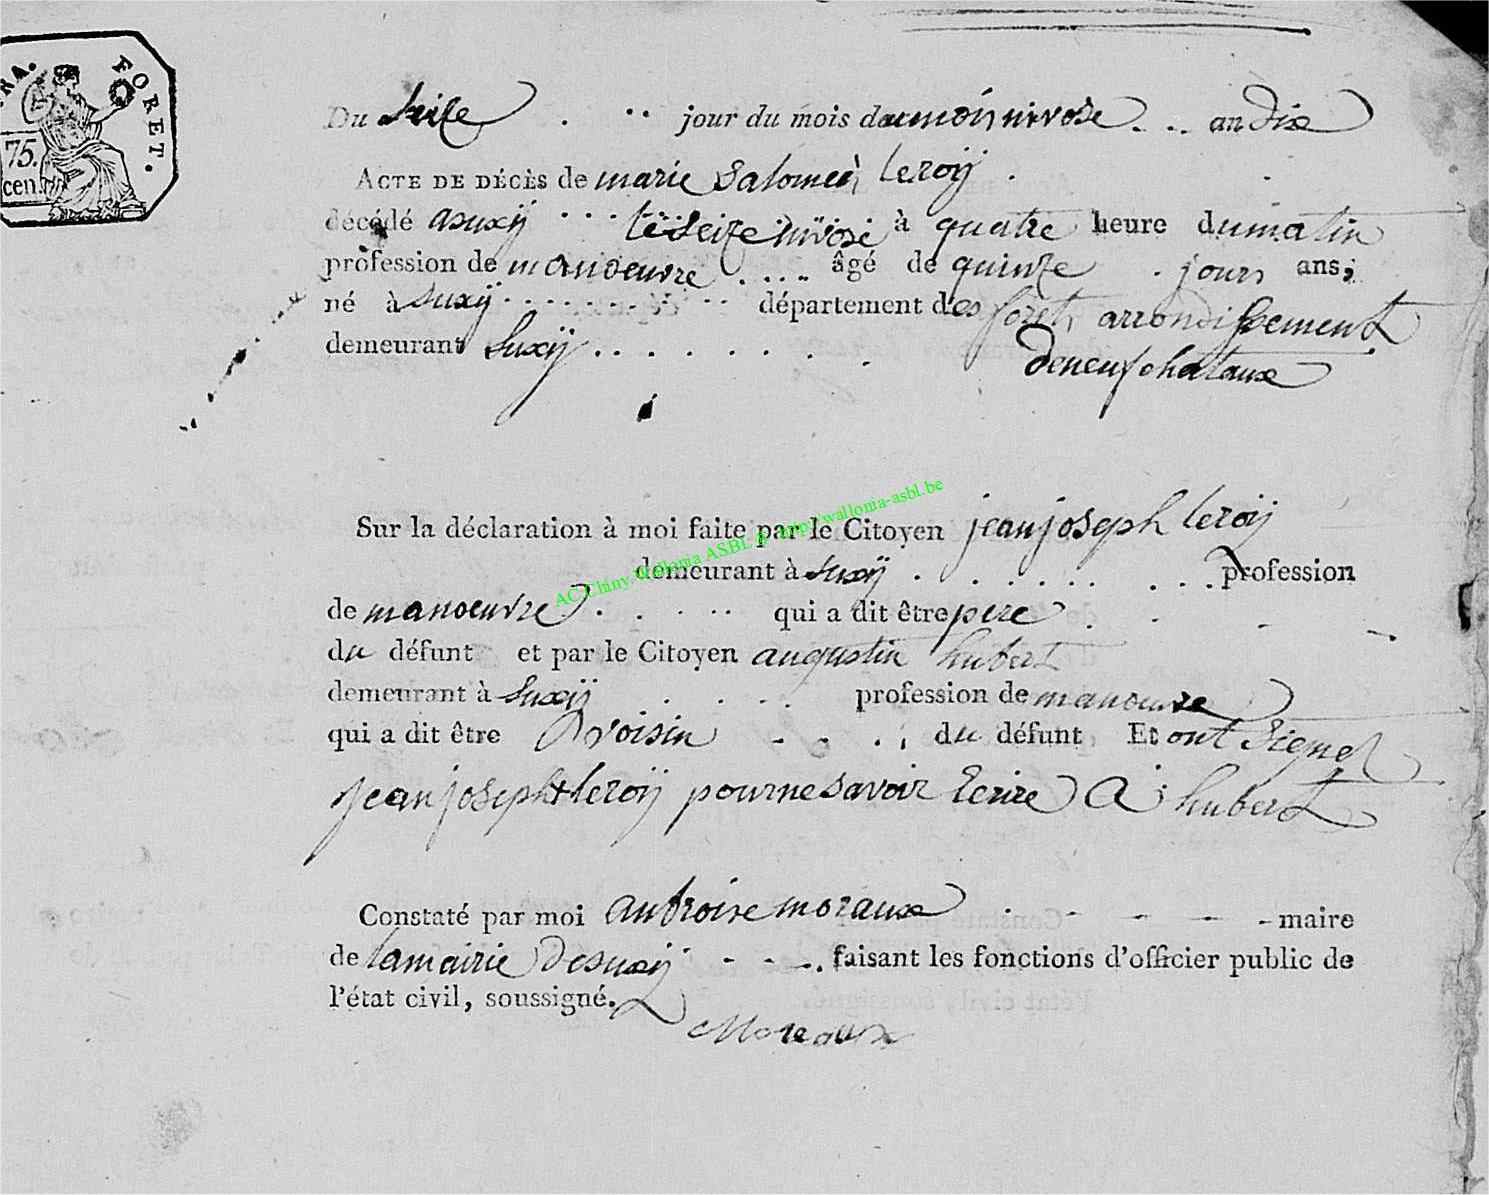 RA. FORET.
75.
cen.
Du Seize jour du mois du mois nivose an Dix
ACTE DE DÉCÈS de marie Salomeè leroÿ
décédé a suxÿ le Seize nivose à quatre heure du matin
profession de manoeuvre âgé de quinze jours ans,
né à Suxÿ département des foret, arrondissement
demeurant Suxÿ de neufchataux
Sur la déclaration à moi faite par le Citoyen jean joseph leroÿ
demeurant à Suxÿ profession
de manoeuvre qui a dit être pere
du défunt et par le Citoyen augustin hubert
demeurant à Suxÿ profession de manouvre
qui a dit être voisin du défunt Et ont Signez
jean joseph + leroÿ pour ne savoir Ecrire A hubert
Constaté par moi anbroise moraux maire
de la mairie de suxÿ faisant les fonctions d'officier public de
l'état civil, soussigné.
Moreaux
AC Chiny. Wallonia ASBL © http://wallonia-asbl.be